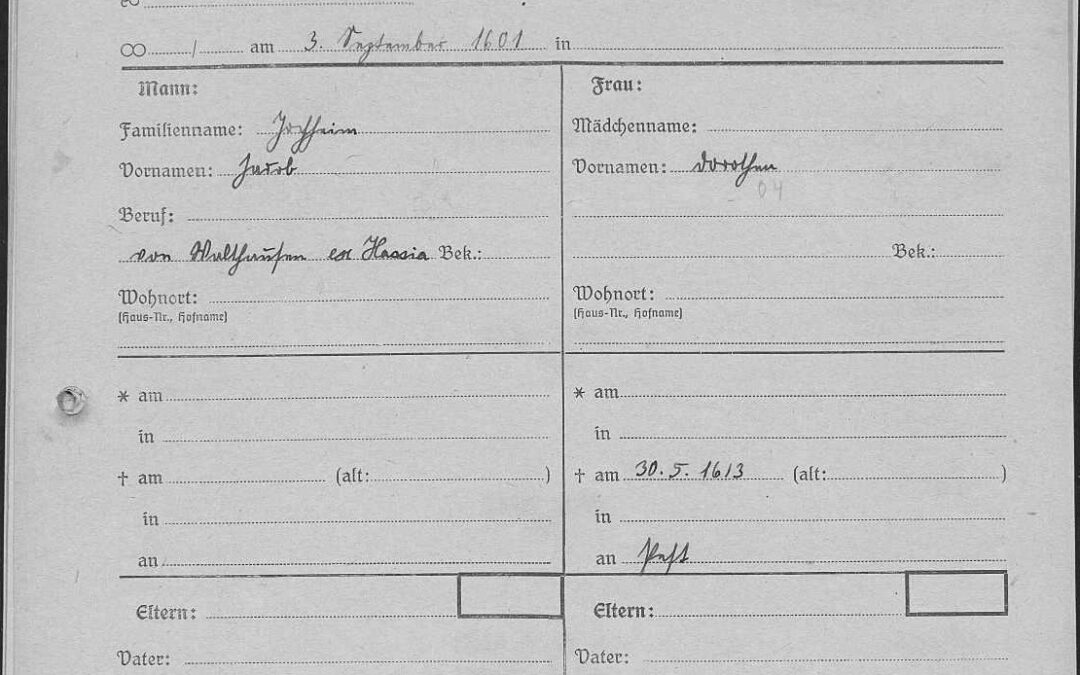 ∞ / am 3. September 1601 in
Mann:
Familienname: Jochheim
Vornamen: Jacob
Beruf:
von Walthausen ex Hassia Bek.:
Wohnort:
(Haus-Nr., Hofname)
* am
in
† am (alt: )
in
an
Eltern:
Vater:
Frau:
Mädchenname:
Vornamen: Dorothea
04
Bek.:
Wohnort:
(Haus-Nr., Hofname)
* am
in
† am 30.5.1613 (alt: )
in
an Pest
Eltern:
Vater: